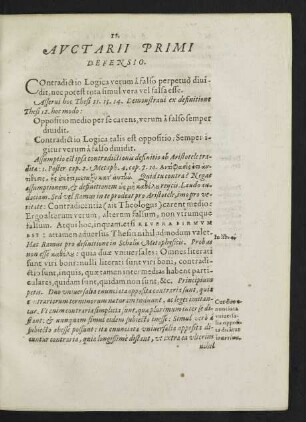 11.
AVCTARII PRIMI
DEFENSIO.
Contradictio Logica verum à falso perpetuò diui-
dit, nec potest tota simul vera vel falsa esse.
Asserui hoc Thesi 11. 13. 14. Demonstraui ex definitione
Thesi 12. hoc modo:
Oppositio medio per se carens, verum à falso semper
diuidit.
Contradictio Logica talis est oppositio. Semper i-
gitur verum à falso diuidit.
Assumptio est ipsa contradictionis definitio ab Aristotele tra-
dita: 1. Poster. cap. 2. Metaph. 4. cap. 7. 10.
Quid tu contra? Negas
assumptionem, & definitionem
Sed vel Ramus in te prodeat pro Aristotele, imo pro ve-
ritate: Contradicentia (ait Theologus) carent medio:
Ergo alterum verum, alterum falsum, non vtrumque
falsum. Atqui hoc, inquam, etsi
est: attamen aduersus Thesin nihil admodum valet.
Hac Ramus pro definitione in Scholis Metaphysicis. Probas
non esse quia duae vniuersales: Omnes literati
sunt viri boni: nulli literati sunt viri boni, contradi-
cunt: inquis, quae tamen intermedias habent parti-
culares, quidam sunt, quidam non sunt &c. Principium
petis. Duo vniuersalia enuntiata opposita contraria sunt, quia
contrariorum terminorum naturam imitantur, ac leges conitan-
tur. Vt enim contraria simplicia sunt, quae plurimum inter se di-
stant, & nunquam simul eidem subiecto inesse: Simul verò à
subiecto abesse possunt: ita enuntiata vniuersalia opposita di-
cuntur contraria, quia longissime distant, vt extra ea vlterius
In Schol.
Cur duo e-
nuntiata
vniuersa-
lia opposi-
ta dicantur
contraria.